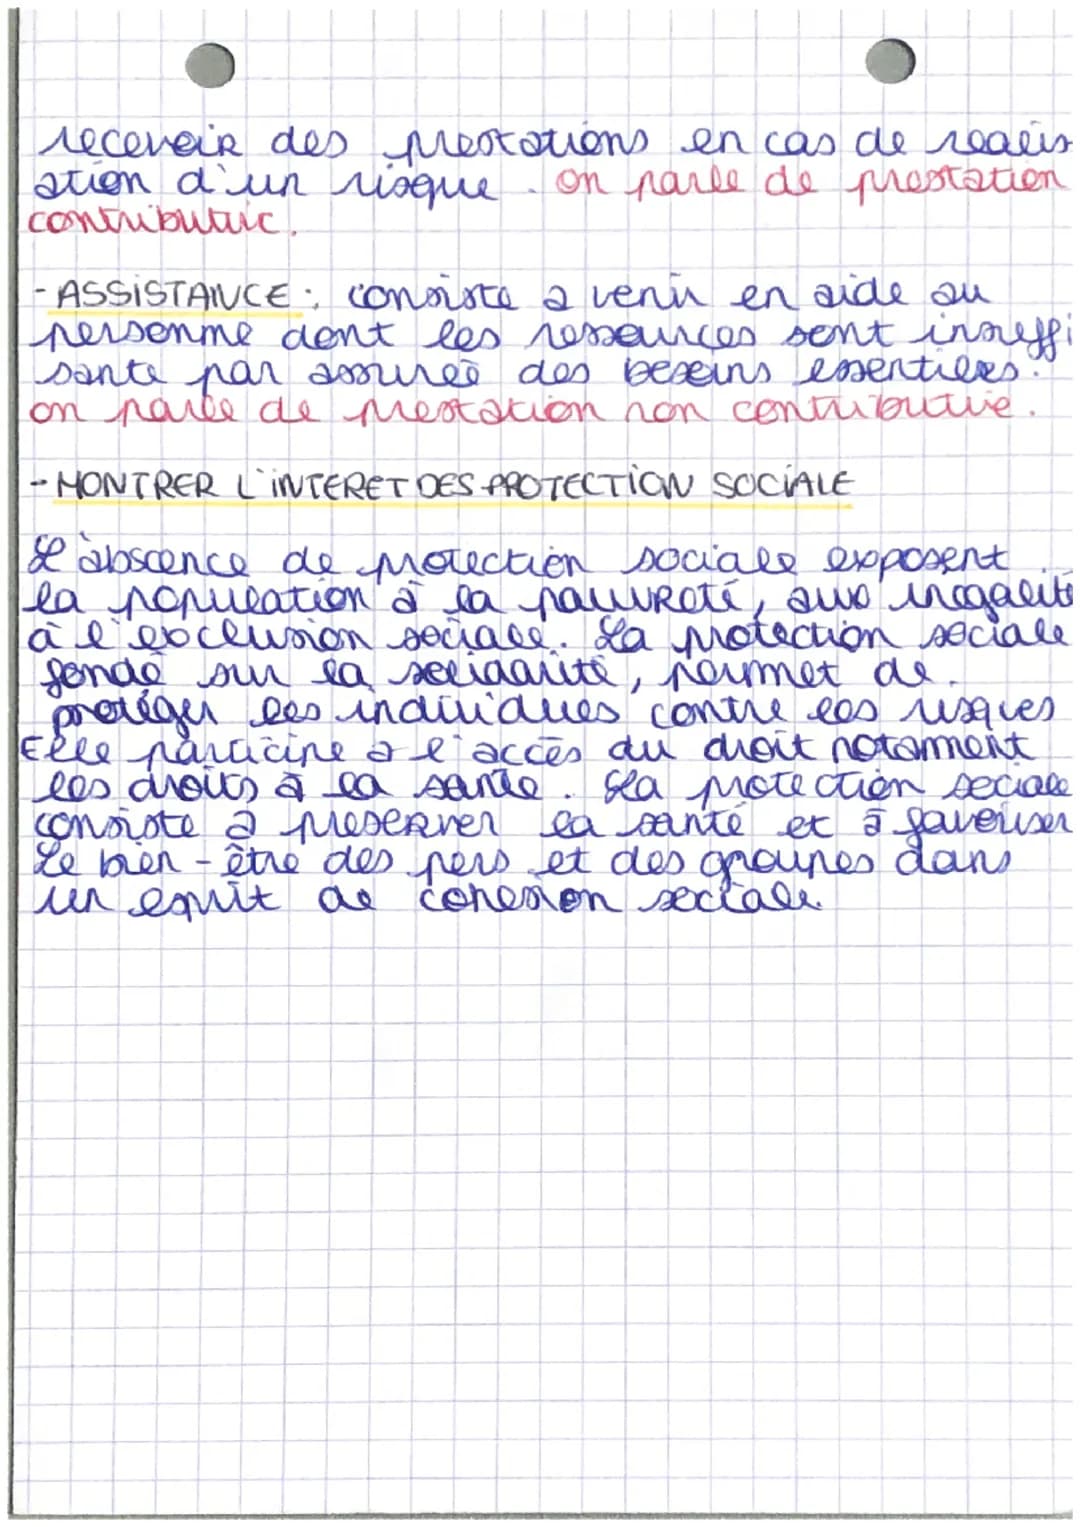 recevoir des prestations en cas de réalis
ation d'un risque. on parle de prestation
contributive.
- ASSISTANCE : consiste a venir en aide au
personne dont les ressources sont insuffi
sante par assurée des besoins essentiels.
on parle de prestation non contributive.
- MONTRER L'INTERET DES PROTECTION SOCIALE
L'abscence de protection sociale exposent
la population à la pauvreté, aux inégalité
à l'exclusion sociale. La protection sociale
fondé sur la solidarité, permet de
protéger les individues contre les risques
Elle participe a l'accès du droit notamment
les droits à la santé. La protection sociale
consiste a preserver la santé et à favoriser
Le bien-être des pers et des groupes dans
un esprit de cohesion sociale.